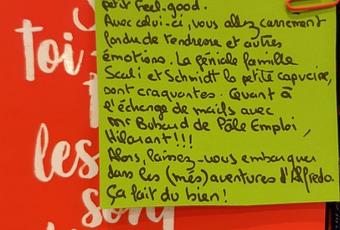 petit feel-good.
Avec celui-ci, vous allez carrément
fondre de tendresse et autres
émotions. La géniale famille
et Schmidt la petite capucine,
sont craquantes. Quant à
l'échange de mails avec
Mr Buhaud de Pôle Emploi,
Hilarant!!!
Alors, laissez-vous embarquer
dans les (més)aventures d'Alfredo.
Ça fait du bien!
toi
les
son